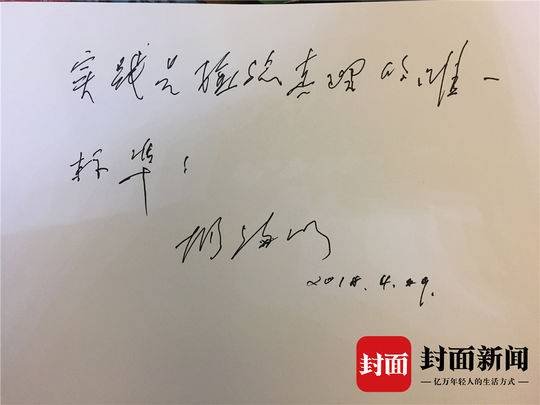 实践是检验真理的唯一
标准！
胡福明
2018.4.29.
封面 封面新闻
亿万年轻人的生活方式